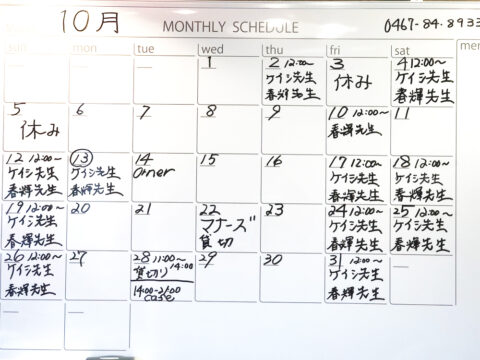 10月 MONTHLY SCHEDULE 0467-84-8933
sun mon tue wed thu fri sat
1
2 12:00~
ケイシ先生
春輝先生
3
休み
4 12:00~
ケイシ先生
春輝先生
5
休み
6
7
8
9
10 12:00~
春輝先生
11
12 12:00~
ケイシ先生
春輝先生
13
ケイシ先生
春輝先生
14
15
16
17 12:00~
ケイシ先生
春輝先生
18 12:00~
ケイシ先生
春輝先生
19 12:00~
ケイシ先生
春輝先生
20
21
22
マナーズ
貸切
23
24 12:00~
ケイシ先生
春輝先生
25 12:00~
ケイシ先生
春輝先生
26 12:00~
ケイシ先生
春輝先生
27
28 11:00~
貸切り 14:00
14:00-21:00
cafe
29
30
31 12:00~
ケイシ先生
春輝先生